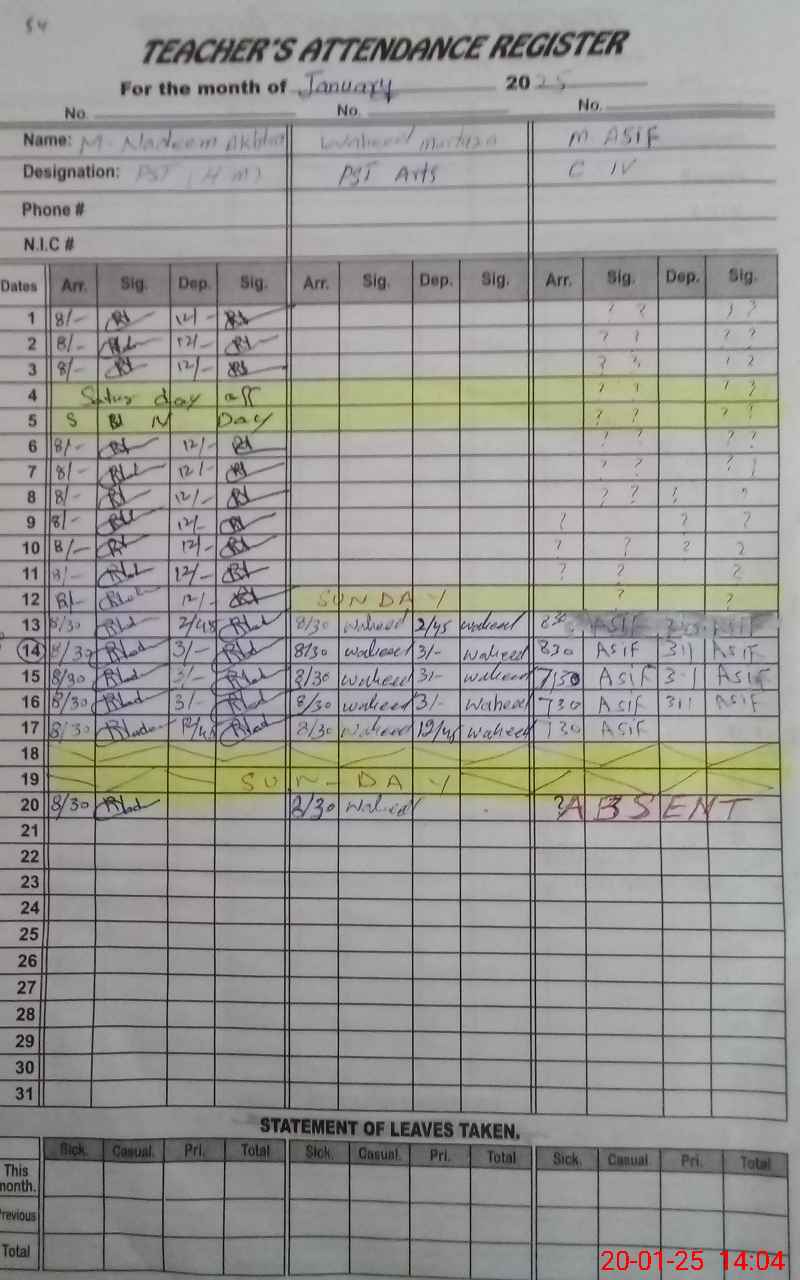 54
TEACHER'S ATTENDANCE REGISTER
For the month of January 2025
No. No. No.
Name: M. Nadeem Akhtar Waheed Murtaza M ASIF
Designation: PST (H M) PST Arts C IV
Phone #
N.I.C #
Dates Arr. Sig. Dep. Sig. Arr. Sig. Dep. Sig. Arr. Sig. Dep. Sig.
1 8/- 12/- ? ? ? ?
2 8/- 12/- ? ? ? ?
3 8/- 12/- ? ? ? ?
4 Satur day off ? ? ? ?
5 S U N Day ? ? ? ?
6 8/- 12/- ? ? ? ?
7 8/- 12/- ? ? ? ?
8 8/- 12/- ? ? ? ?
9 8/- 12/- ? ? ?
10 8/- 12/- ? ? ? ?
11 8/- 12/- ? ? ?
12 12/- SUNDAY ? ?
13 8/30 2/45 8/30 waheed 2/45 waheed 830 ASIF ASIF
14 8/30 3/- 8/30 waheed 3/- waheed 830 ASIF 311 ASIF
15 8/30 3/- 8/30 waheed 3/- waheed 7130 ASIF 3-1 ASIF
16 8/30 3/- 8/30 waheed 3/- waheed 730 ASIF 311 ASIF
17 8/30 12/45 8/30 waheed 12/45 waheed 730 ASIF
18
19 SUN-DAY
20 8/30 2/30 waheed ABSENT
21
22
23
24
25
26
27
28
29
30
31
STATEMENT OF LEAVES TAKEN.
Sick. Casual. Pri. Total Sick. Casual. Pri. Total Sick. Casual Pri. Total
This month.
Previous
Total
20-01-25 14:04